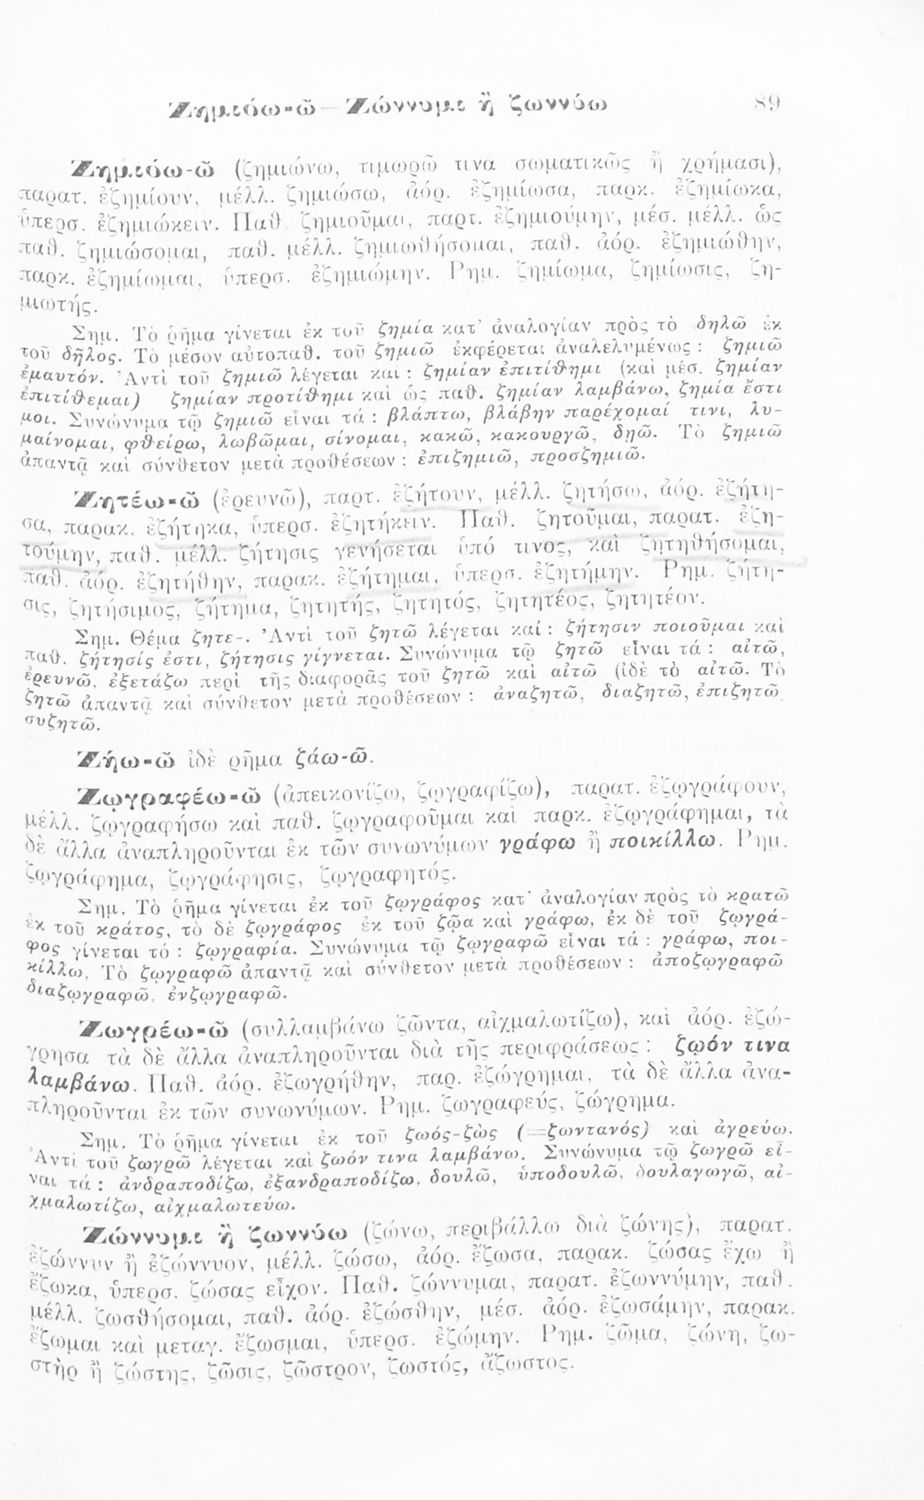 Ζημιόω-ῶ — Ζώννυμι ἢ ζωννύω 89
Ζημιόω-ῶ (ζημιώνω, τιμωρῶ τινα σωματικῶς ἢ χρήμασι),
παρατ. ἐζημίουν, μέλλ. ζημιώσω, ἀόρ. ἐζημίωσα, παρκ. ἐζημίωκα,
ὑπερσ. ἐζημιώκειν. Παθ. ζημιοῦμαι, παρτ. ἐζημιούμην, μέσ. μέλλ. ὡς
παθ. ζημιώσομαι, παθ. μέλλ. ζημιωθήσομαι, παθ. ἀόρ. ἐζημιώθην,
παρκ. ἐζημίωμαι, ὑπερσ. ἐζημιώμην. Ρημ. ζημίωμα, ζημίωσις, ζη-
μιωτής.
Σημ. Τὸ ρῆμα γίνεται ἐκ τοῦ ζημία κατ' ἀναλογίαν πρὸς τὸ δηλῶ ἐκ
τοῦ δῆλος. Τὸ μέσον αὐτοπαθ. τοῦ ζημιῶ ἐκφέρεται ἀναλελυμένως : ζημιῶ
ἐμαυτόν. Ἀντὶ τοῦ ζημιῶ λέγεται καὶ : ζημίαν ἐπιτίθημι (καὶ μέσ. ζημίαν
ἐπιτίθεμαι) ζημίαν προτίθημι καὶ ὡς παθ. ζημίαν λαμβάνω, ζημία ἔστι
μοι. Συνώνυμα τῷ ζημιῶ εἶναι τά : βλάπτω, βλάβην παρέχομαί τινι, λυ-
μαίνομαι, φθείρω, λωβῶμαι, σίνομαι, κακῶ, κακουργῶ, δῃῶ. Τὸ ζημιῶ
ἀπαντᾷ καὶ σύνθετον μετὰ προθέσεων : ἐπιζημιῶ, προσζημιῶ.
Ζητέω-ῶ (ἐρευνῶ), παρτ. ἐζήτουν, μέλλ. ζητήσω, ἀόρ. ἐζήτη-
σα, παρακ. ἐζήτηκα, ὑπερσ. ἐζητήκειν. Παθ. ζητοῦμαι, παρατ. ἐζη-
τούμην, παθ. μέλλ. ζήτησις γενήσεται ὑπό τινος, καὶ ζητηθήσομαι,
παθ. ἀόρ. ἐζητήθην, παρακ. ἐζήτημαι, ὑπερσ. ἐζητήμην. Ρημ. ζήτη-
σις, ζητήσιμος, ζήτημα, ζητητής, ζητητός, ζητητέος, ζητητέον.
Σημ. Θέμα ζητε-. Ἀντὶ τοῦ ζητῶ λέγεται καί : ζήτησιν ποιοῦμαι καὶ
παθ. ζήτησίς ἐστι, ζήτησις γίγνεται. Συνώνυμα τῷ ζητῶ εἶναι τά : αἰτῶ,
ἐρευνῶ, ἐξετάζω περὶ τῆς διαφορᾶς τοῦ ζητῶ καὶ αἰτῶ (ἰδὲ τὸ αἰτῶ. Τὸ
ζητῶ ἀπαντᾷ καὶ σύνθετον μετὰ προθέσεων : ἀναζητῶ, διαζητῶ, ἐπιζητῶ
συζητῶ.
Ζήω-ῶ ἰδὲ ρῆμα ζάω-ῶ.
Ζωγραφέω-ῶ (ἀπεικονίζω, ζωγραφίζω), παρατ. ἐζωγράφουν,
μέλλ. ζωγραφήσω καὶ παθ. ζωγραφοῦμαι καὶ παρκ. ἐζωγράφημαι, τὰ
δὲ ἄλλα ἀναπληροῦνται ἐκ τῶν συνωνύμων γράφω ἢ ποικίλλω. Ρημ.
ζωγράφημα, ζωγράφησις, ζωγραφητός.
Σημ. Τὸ ρῆμα γίνεται ἐκ τοῦ ζωγράφος κατ' ἀναλογίαν πρὸς τὸ κρατῶ
ἐκ τοῦ κράτος, τὸ δὲ ζωγράφος ἐκ τοῦ ζῷα καὶ γράφω, ἐκ δὲ τοῦ ζωγρά-
φος γίνεται τό : ζωγραφία. Συνώνυμα τῷ ζωγραφῶ εἶναι τά : γράφω, ποι-
κίλλω. Τὸ ζωγραφῶ ἀπαντᾷ καὶ σύνθετον μετὰ προθέσεων : ἀποζωγραφῶ
διαζωγραφῶ, ἐνζωγραφῶ.
Ζωγρέω-ῶ (συλλαμβάνω ζῶντα, αἰχμαλωτίζω), καὶ ἀόρ. ἐζώ-
γρησα τὰ δὲ ἄλλα ἀναπληροῦνται διὰ τῆς περιφράσεως : ζῳόν τινα
λαμβάνω. Παθ. ἀόρ. ἐζωγρήθην, παρ. ἐζώγρημαι, τὰ δὲ ἄλλα ἀνα-
πληροῦνται ἐκ τῶν συνωνύμων. Ρημ. ζωγραφεύς, ζώγρημα.
Σημ. Τὸ ρῆμα γίνεται ἐκ τοῦ ζωός-ζὼς (=ζωντανός) καὶ ἀγρεύω.
Ἀντὶ τοῦ ζωγρῶ λέγεται καὶ ζωόν τινα λαμβάνω. Συνώνυμα τῷ ζωγρῶ εἶ-
ναι τά : ἀνδραποδίζω, ἐξανδραποδίζω, δουλῶ, ὑποδουλῶ, δουλαγωγῶ, αἰ-
χμαλωτίζω, αἰχμαλωτεύω.
Ζώννυμι ἢ ζωννύω (ζώνω, περιβάλλω διὰ ζώνης), παρατ.
ἐζώννυν ἢ ἐζώννυον, μέλλ. ζώσω, ἀόρ. ἔζωσα, παρακ. ζώσας ἔχω ἢ
ἔζωκα, ὑπερσ. ζώσας εἶχον. Παθ. ζώννυμαι, παρατ. ἐζωννύμην, παθ.
μέλλ. ζωσθήσομαι, παθ. ἀόρ. ἐζώσθην, μέσ. ἀόρ. ἐζωσάμην, παρακ.
ἔζωμαι καὶ μεταγ. ἔζωσμαι, ὑπερσ. ἐζώμην. Ρημ. ζῶμα, ζώνη, ζω-
στὴρ ἢ ζώστης, ζῶσις, ζῶστρον, ζωστός, ἄζωστος.